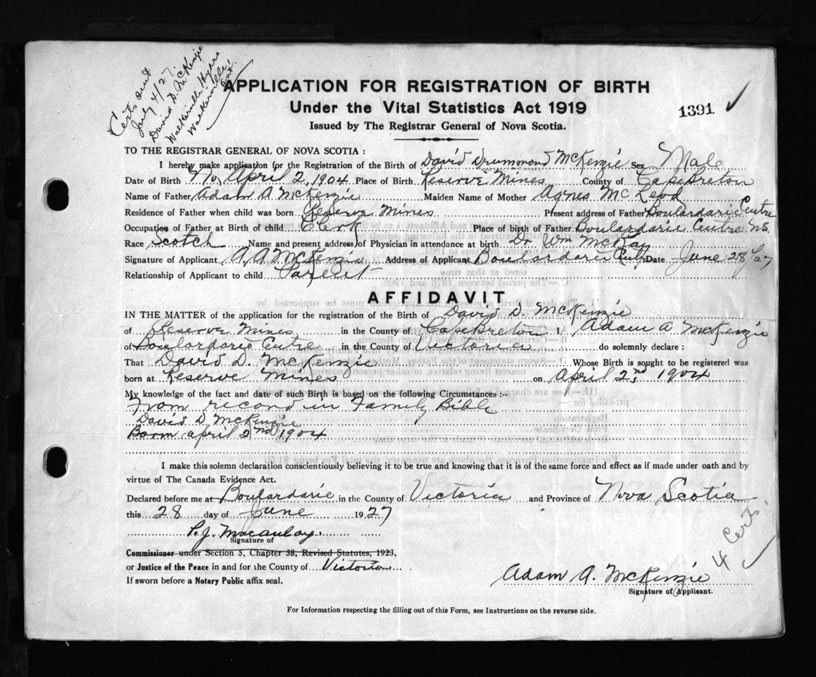 Certs out
July 4/27.
David D. McKenzie
Walkerville
Ont.
APPLICATION FOR REGISTRATION OF BIRTH
Under the Vital Statistics Act 1919
1391 ✓
Issued by The Registrar General of Nova Scotia.
TO THE REGISTRAR GENERAL OF NOVA SCOTIA :
I hereby make application for the Registration of the Birth of David Drummond McKenzie Sex Male
Date of Birth April 2, 1904 Place of Birth Reserve Mines County of Cape Breton
Name of Father Adam A McKenzie Maiden Name of Mother Agnes McLeod
Residence of Father when child was born Reserve Mines Present address of Father Boulardarie Centre
Occupation of Father at Birth of child Clerk Place of birth of Father Boulardarie Centre N.S.
Race Scotch Name and present address of Physician in attendance at birth Dr. Wm McKay
Signature of Applicant A A McKenzie Address of Applicant Boulardarie Date June 28/27
Relationship of Applicant to child Parent
AFFIDAVIT
IN THE MATTER of the application for the registration of the Birth of David D. McKenzie
of Reserve Mines in the County of Cape Breton I, Adam A McKenzie
of Boulardarie Centre in the County of Victoria do solemnly declare :
That David D. McKenzie Whose Birth is sought to be registered was
born at Reserve Mines on April 2nd 1904
My knowledge of the fact and date of such Birth is based on the following Circumstances :-
From record in Family Bible
David D McKenzie
Born April 2nd 1904
I make this solemn declaration conscientiously believing it to be true and knowing that it is of the same force and effect as if made under oath and by
virtue of The Canada Evidence Act.
Declared before me at Boulardarie in the County of Victoria and Province of Nova Scotia
this 28 day of June 1927
P. J. Macaulay
Signature of
Commissioner under Section 5, Chapter 38, Revised Statutes, 1923,
or Justice of the Peace in and for the County of Victoria
If sworn before a Notary Public affix seal.
4 Certs.
Adam A. McKenzie
Signature of Applicant.
For Information respecting the filling out of this Form, see Instructions on the reverse side.